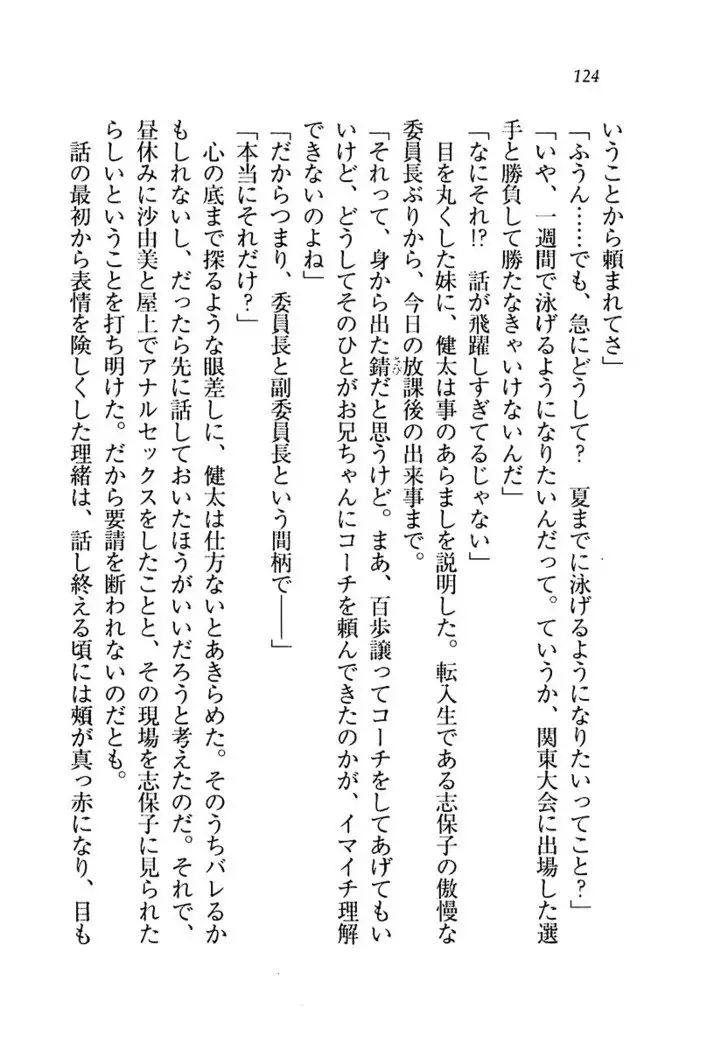 124
いうことから頼まれてさ」
「ふうん……でも、急にどうして？　夏までに泳げるようになりたいってこと？」
「いや、一週間で泳げるようになりたいんだって。ていうか、関東大会に出場した選
手と勝負して勝たなきゃいけないんだ」
「なにそれ!?　話が飛躍しすぎてるじゃない」
　目を丸くした妹に、健太は事のあらましを説明した。転入生である志保子の傲慢な
委員長ぶりから、今日の放課後の出来事まで。
「それって、身から出た錆だと思うけど。まあ、百歩譲ってコーチをしてあげてもい
いけど、どうしてそのひとがお兄ちゃんにコーチを頼んできたのかが、イマイチ理解
できないのよね」
「だからつまり、委員長と副委員長という間柄で――」
「本当にそれだけ？」
　心の底まで探るような眼差しに、健太は仕方ないとあきらめた。そのうちバレるか
もしれないし、だったら先に話しておいたほうがいいだろうと考えたのだ。それで、
らしいということを打ち明けた。だから要請を断われないのだとも。
　話の最初から表情を険しくした理緒は、話し終える頃には頬が真っ赤になり、目も